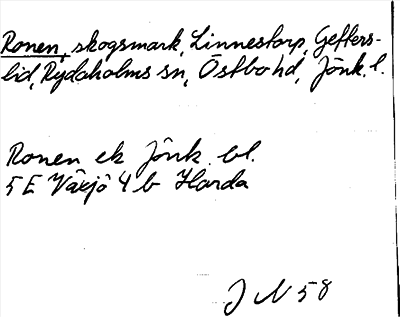 Ronen, skogsmark, Linnestorp, Geffers-
lid, Rydaholms sn, Östbo hd, Jönk. l.
Ronen ek Jönk. bl.
5 E Växjö 4 b Horda
J N 58